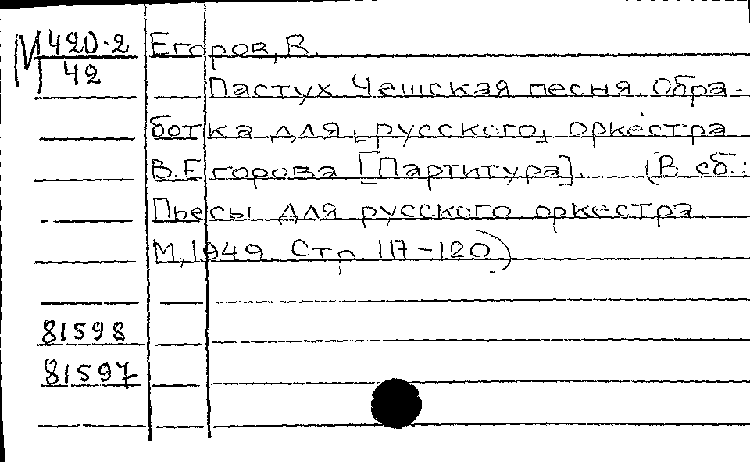 М 420-2 Егоров, В.
42
Пастух Чешская песня Обра-
ботка для русского оркестра
В. Егорова [Партитура]. (В сб.:
Пьесы для русского оркестра
М, 1949 Стр 117-120)
81598
81597